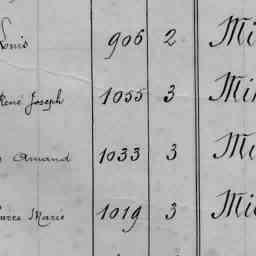 Louis 906 2 Mi
René Joseph 1055 3 Mi
Amand 1033 3 Mi
Marie 1019 3 Mi